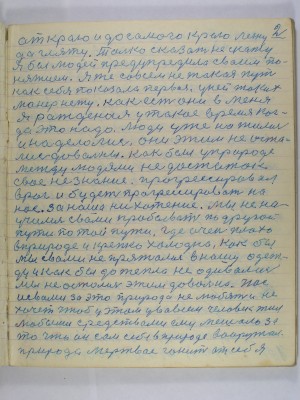 2/
от краю и до самого краю лечу
да гляжу. Только сказать не скажу
Я бы людей предупредил своим по-
нятием. Я же совсем не такая пут
как себя показала первая. у ней таких
манер нету. как есть они в меня
Я рожденая у такае время ког-
да это надо. Люди уже нажили
и наделолис. они этим не оста
лис довольны. Как был у природе
между людями недостаток
свое незнание. прогрессировал
враг и будет прогрессировать на
нас. За наше нехотение. Мы не на-
училися свами пробывать по другой
пути по той пути, где очен плохо
в природе и крепко холодно, как бы
мы свами не прятолис в нашу одеж-
ду и как бы до тепла не одивалис
мы не осталис этим довольны. Нас
свами за это природа не любят и не
хочет чтобы у этом у во всем человик жил
любыми средствами ему мешало за
то что он сам себя в природе вооружал
природа. мертвае гонит от себя